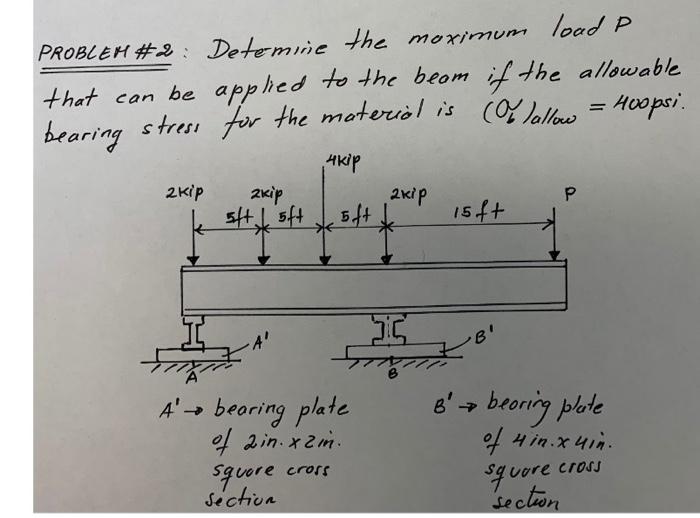 PROBLEM #2 : Determine the maximum load P
that can be applied to the beam if the allowable
bearing stress for the material is (σb)allow = 400psi.
4kip
2kip 2kip 2kip P
5ft 5ft 5ft 15ft
A' B'
A B
A' → bearing plate
of 2in. x 2in.
square cross
section
B' → bearing plate
of 4in. x 4in.
square cross
section